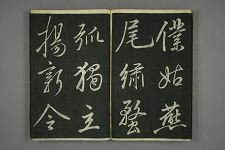 僕姑燕
尾繡蝥
孤獨立
揚新令